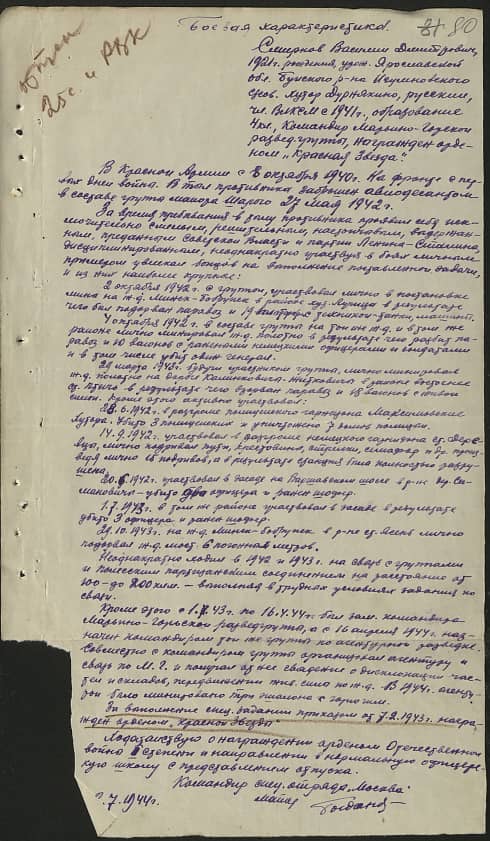 80
Боевая характеристика.
Смирнов Василий Дмитриевич,
1921г. рождения, урож. Ярославской
обл. р-на
хутор русский,
чл. ВЛКСМ с 1941г., образование
4кл., Командир Марьино-Горской
разведгруппы, награжден орде-
ном "Красная Звезда".
В Красной Армии с 8 октября 1940г. На фронте с пер-
вых дней войны. В тыл противника заброшен авиодесантом
в составе группы майора 27 мая 1942г.
За время пребывания в тылу противника проявил себя иск-
лючительно смелым, решительным, настойчивым, выдержан-
ным, преданным Советской Власти и партии Ленина-Сталина,
дисциплинированным, неоднократно участвуя в боях личным
примером увлекал бойцов на выполнение поставленной задачи,
и из них наиболее крупные:
2 октября 1942г. с группой, участвовал лично в постановке
мины на ж.д. Минск-Бобруйск в районе в результате
чего был подорван паровоз и 19 вагонов с техникой-танки,
октября 1942г. в составе группы на той же ж.д. и в том же
районе лично минировал ж.д. полотно в результате чего разбит па-
ровоз и 10 вагонов с ранеными немецкими офицерами и солдатами
и в том числе убит один генерал.
29 марта 1943г. будучи участником группы, лично минировал
ж.д. полотно на дороге Калинковичи-Житковичи в районе восточнее
ст. Птичь в результате чего взорван паровоз и вагонов с живой
силой. Кроме этого активно участвовал:
28.6.1942г. в разгроме полицейского гарнизона
хутора. Убито 3 полицейских и уничтожено 7 домов полиции.
14.9.1942г. участвовал в разгроме немецкого гарнизона ст.
лично подрывая пути, крестовины, стрелки, семафор и др. произ-
ведя лично подрывов, а в результате станция была полностью разру-
шена.
20.6.1942г. участвовал в засаде на Варшавском шоссе в р-не
убито два офицера и ранен шофер.
1.7.1943г. в том же районе участвовал в засаде в результате
убито 3 офицера и ранен шофер.
29.10.1943г. на ж.д. Минск-Бобруйск в р-не ст. Ясень лично
подорвал ж.д. мост 6 погонных метров.
Неоднократно ходил в 1942 и 1943г. на связь с группами
и Полесским партизанским соединением на расстояние от
100-до 200 клм. - выполняя в трудных условиях задания по
связи.
Кроме этого с 1.7.43г. по 16.4.44г. был зам. командира
Марьино-Горской разведгруппы, а с 16 апреля 1944г. наз-
начен командиром той же группы по агентурной разведке.
Совместно с командиром группы организовал агентуру и
связь по М.Г. и получал от нее сведения о дислокации час-
тей и складов, передвижении жив. силы по ж.д. В 1944г. агенту-
рой было минировано три эшалона с горючим.
За выполнение спец. задания приказом от 7.2.1943г. награ-
жден орденом "Красной Звезды"
Ходатайствую о награждении орденом Отечественной
войны степени и направлении в нормальную офицер-
скую школу с представлением отпуска.
Командир спец. отряда "Москва"
майор
7.1944г.